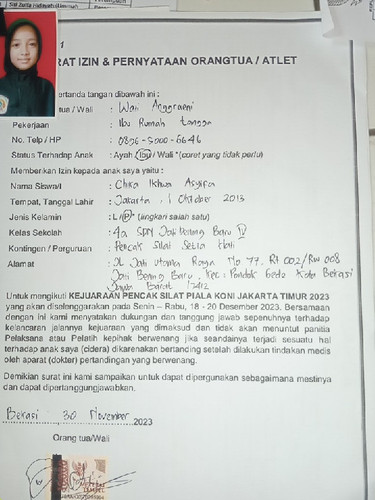 RAT IZIN & PERNYATAAN ORANGTUA / ATLET
ertanda tangan dibawah ini :
tua / Wali : Wati Anggraeni
Pekerjaan : Ibu Rumah Tangga
No. Telp / HP : 0896-5000-6646
Status Terhadap Anak : Ayah / Ibu / Wali *(coret yang tidak perlu)
Memberikan Izin kepada anak saya yaitu :
Nama Siswa/i : Chika Ikhwa Asyifa
Tempat, Tanggal Lahir : Jakarta, 1 Oktober 2013
Jenis Kelamin : L / P *( lingkari salah satu)
Kelas Sekolah : 4a SDN Jati Bening Baru IV
Kontingen / Perguruan : Pencak Silat Setia Hati
Alamat : JL Jati Utama Raya No 77. Rt 002/RW 008
Jati Bening Baru, Kec: Pondok Gede Kota Bekasi
Jawa Barat 17412
Untuk mengikuti KEJUARAAN PENCAK SILAT PIALA KONI JAKARTA TIMUR 2023
yang akan diselenggarakan pada Senin – Rabu, 18 - 20 Desember 2023. Bersamaan
dengan ini kami menyatakan dukungan dan tanggung jawab sepenuhnya terhadap
kelancaran jalannya kejuaraan yang dimaksud dan tidak akan menuntut panitia
Pelaksana atau Pelatih kepihak berwenang jika seandainya terjadi sesuatu hal
terhadap anak saya (cidera) dikarenakan bertanding setelah dilakukan tindakan medis
oleh aparat (dokter) pertandingan yang berwenang.
Demikian surat ini kami sampaikan untuk dapat dipergunakan sebagaimana mestinya
dan dapat dipertanggungjawabkan.
Bekasi, 30 November 2023
Orang tua/Wali